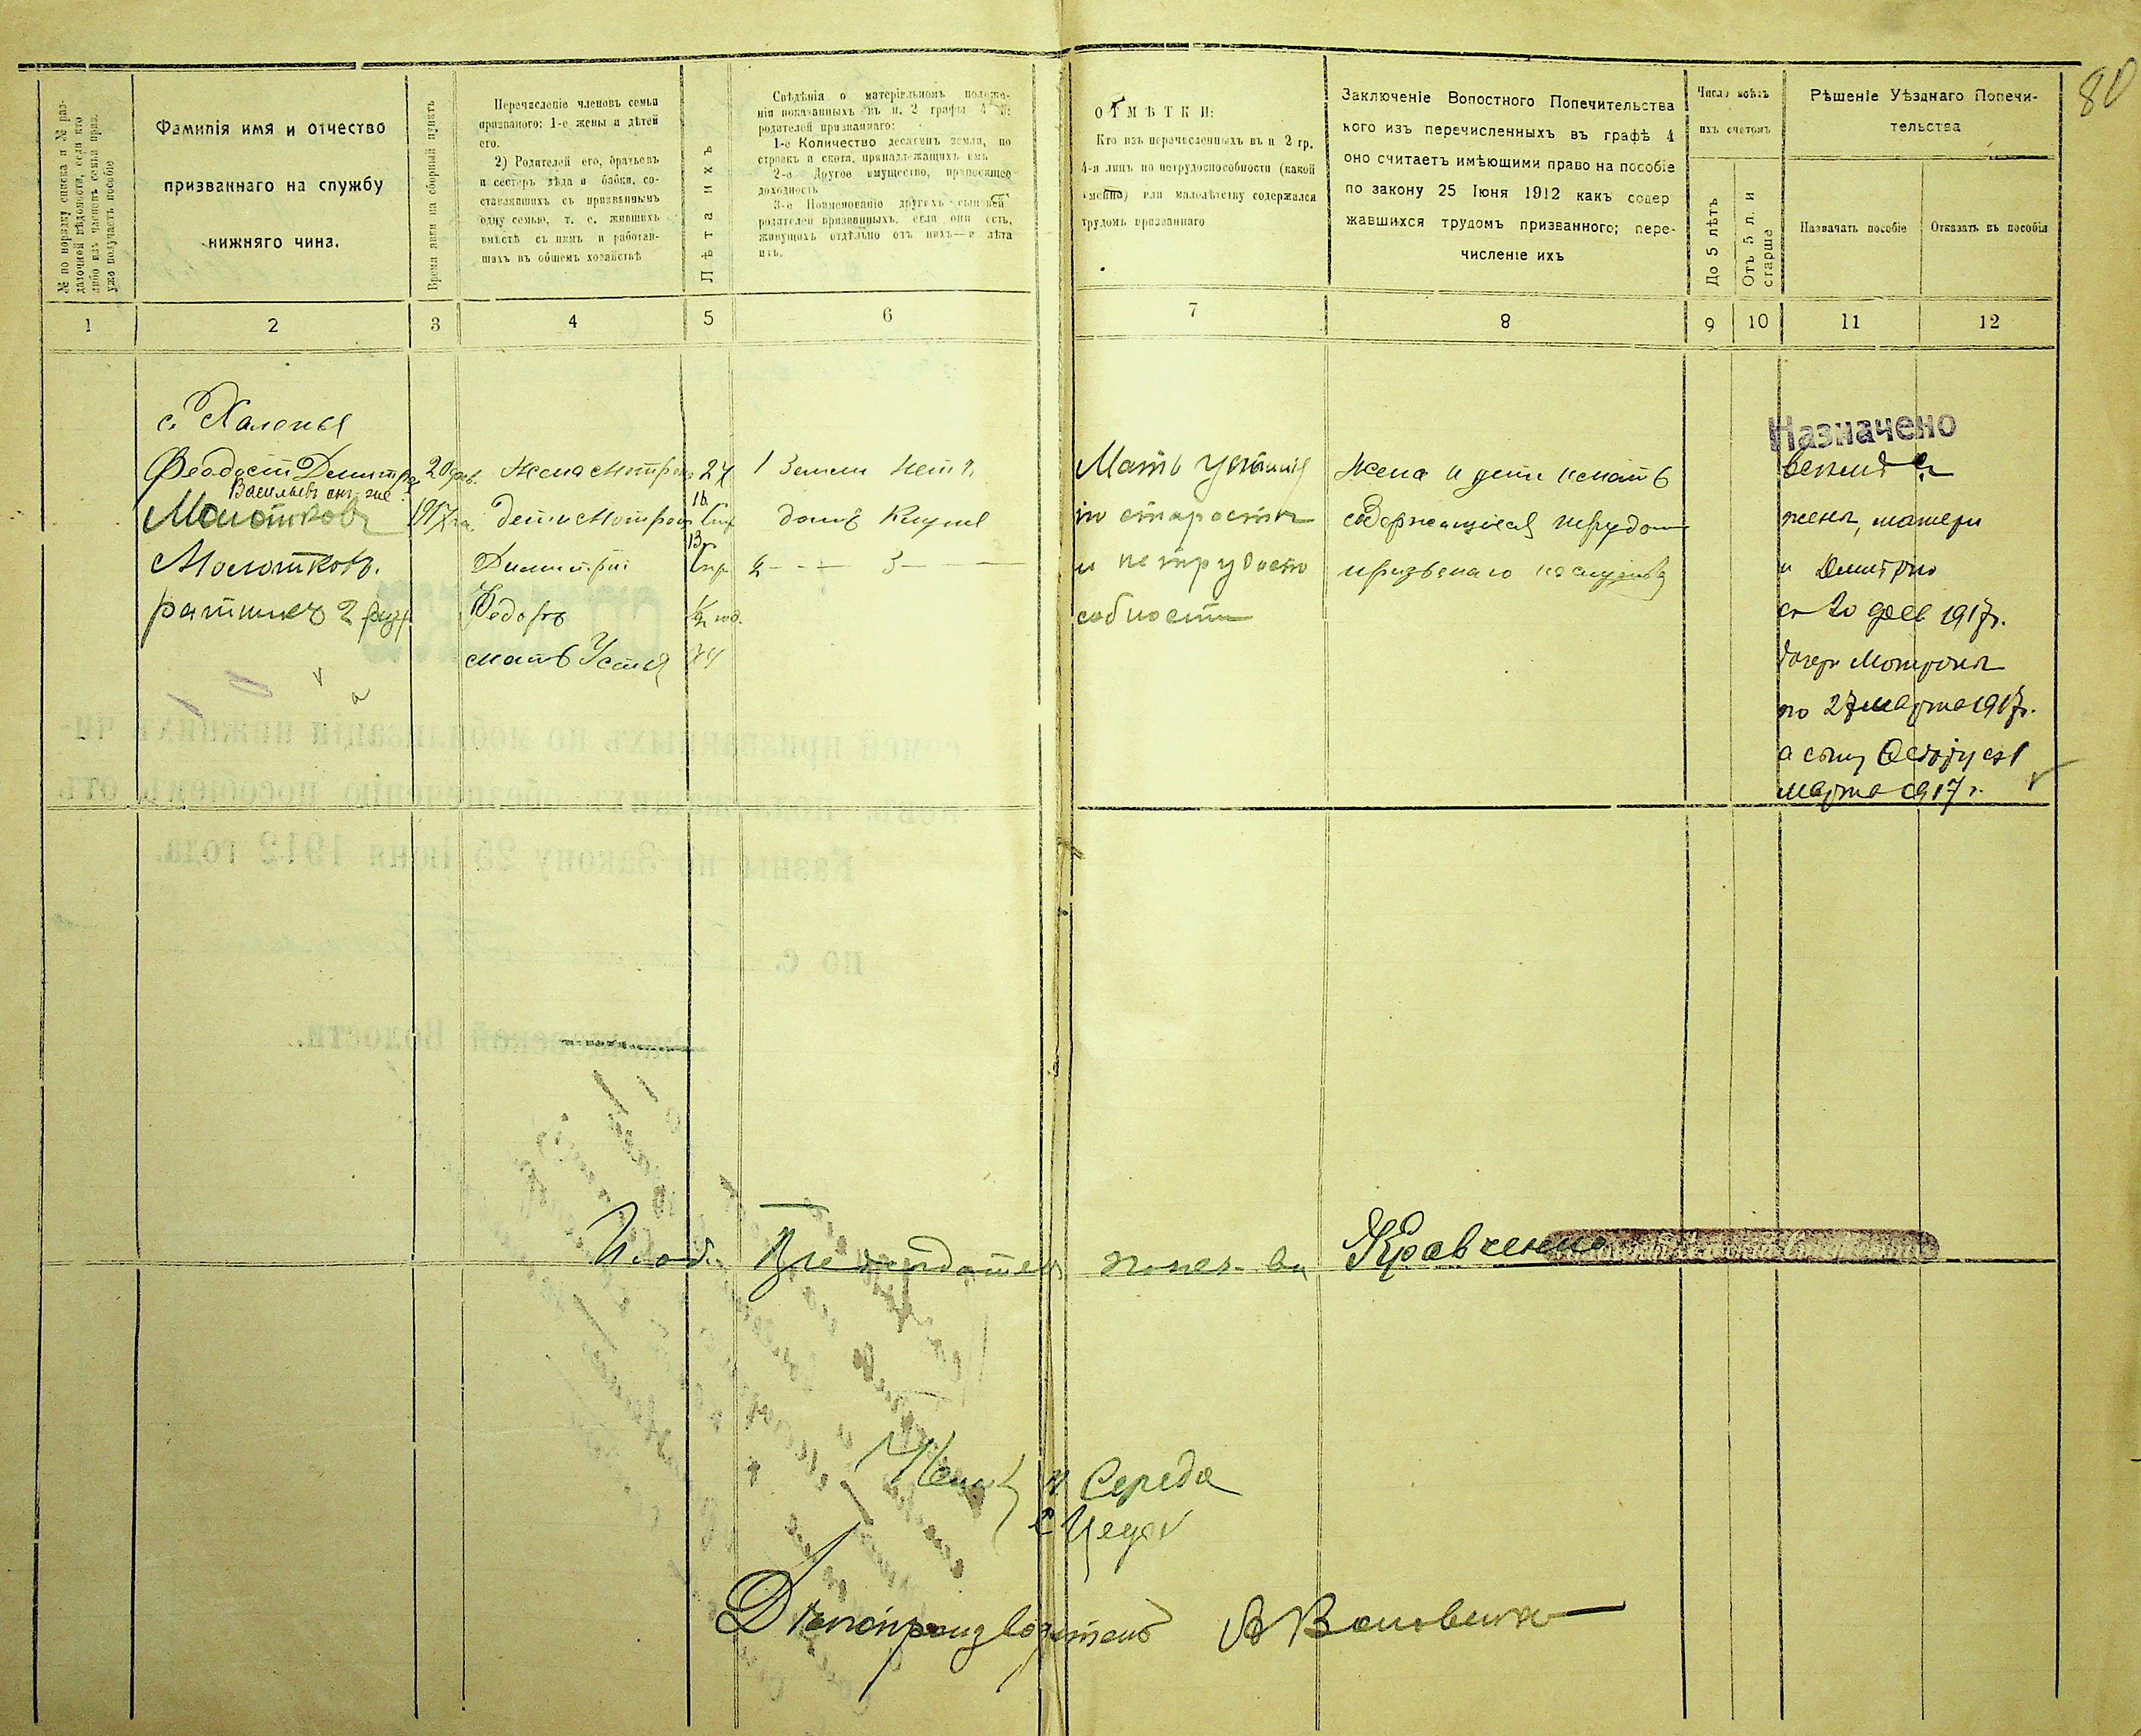 80
№ по порядку списка и № раз-
даточной вѣдомости, если кто
либо изъ членовъ семьи приз.
уже получаетъ пособіе
Фамилія имя и отчество
призваннаго на службу
нижняго чина.
Время явки на сборный пунктъ
Перечисленіе членовъ семьи
призваного: 1-е жены и дѣтей
его.
2) Родителей его, братьевъ
и сестеръ дѣда и бабки, со-
ставлявшихъ съ призваннымъ
одну семью, т. е. жившихъ
вмѣстѣ съ нимъ и работав-
шихъ въ общемъ хозяйствѣ
Лѣта ихъ
Свѣдѣнія о матеріяльномъ положе-
ніи показанныхъ въ п. 2 графы 4
родителей призваннаго:
1-е Количество десятинъ земли, по
строекъ и скота, принадлежащихъ имъ
2-е Другое имущество, приносящее
доходность
3-е Поименованіе другихъ сыновей
родителей призванныхъ, если они есть,
живущихъ отдѣльно отъ нихъ—и лѣта
ихъ.
ОТМѢТКИ:
Кто изъ перечисленныхъ въ п 2 гр.
4-я лицъ по нетрудоспособности (какой
именно) или малолѣтству содержался
трудомъ призваннаго
Заключеніе Вопостного Попечительства
кого изъ перечисленныхъ въ графѣ 4
оно считаетъ имѣющими право на пособіе
по закону 25 Іюня 1912 какъ содер
жавшихся трудомъ призванного; пере-
численіе ихъ
Число
ихъ счетомъ
До 5 лѣтъ
Отъ 5 л. и
старше
Рѣшеніе Уѣзднаго Попечи-
тельства
Назначать пособіе
Отказать въ пособіи
1 2 3 4 5 6 7 8 9 10 11 12
с. Халепья
Феодосій Дмитр
Васильевъ онъ же
Молотковъ
Молотковъ.
ратникъ 2 разр.
20 фев.
1917 г.
Жена Мотрона 24
дети Мотрона 16
Димитрій 13
Федоръ ½ год.
мать Устія 74
1 Земли нетъ
домъ Куплѣ
2 - - - 3 - - -
Мать Устинія
по старости
и нетрудоспо
собности
Жена и дети и мать
содержащіеся трудом
призванаго на службу
Назначено
жены, матери
и Дмитрію
съ 20 фев 1917 г.
дочери Мотроны
по 27 марта 1917 г.
а сыну Федору съ 1
марта 1917 г.
И. об. Председателя попеч-ва Кравченко
Члены Середа
Делопроизводитель